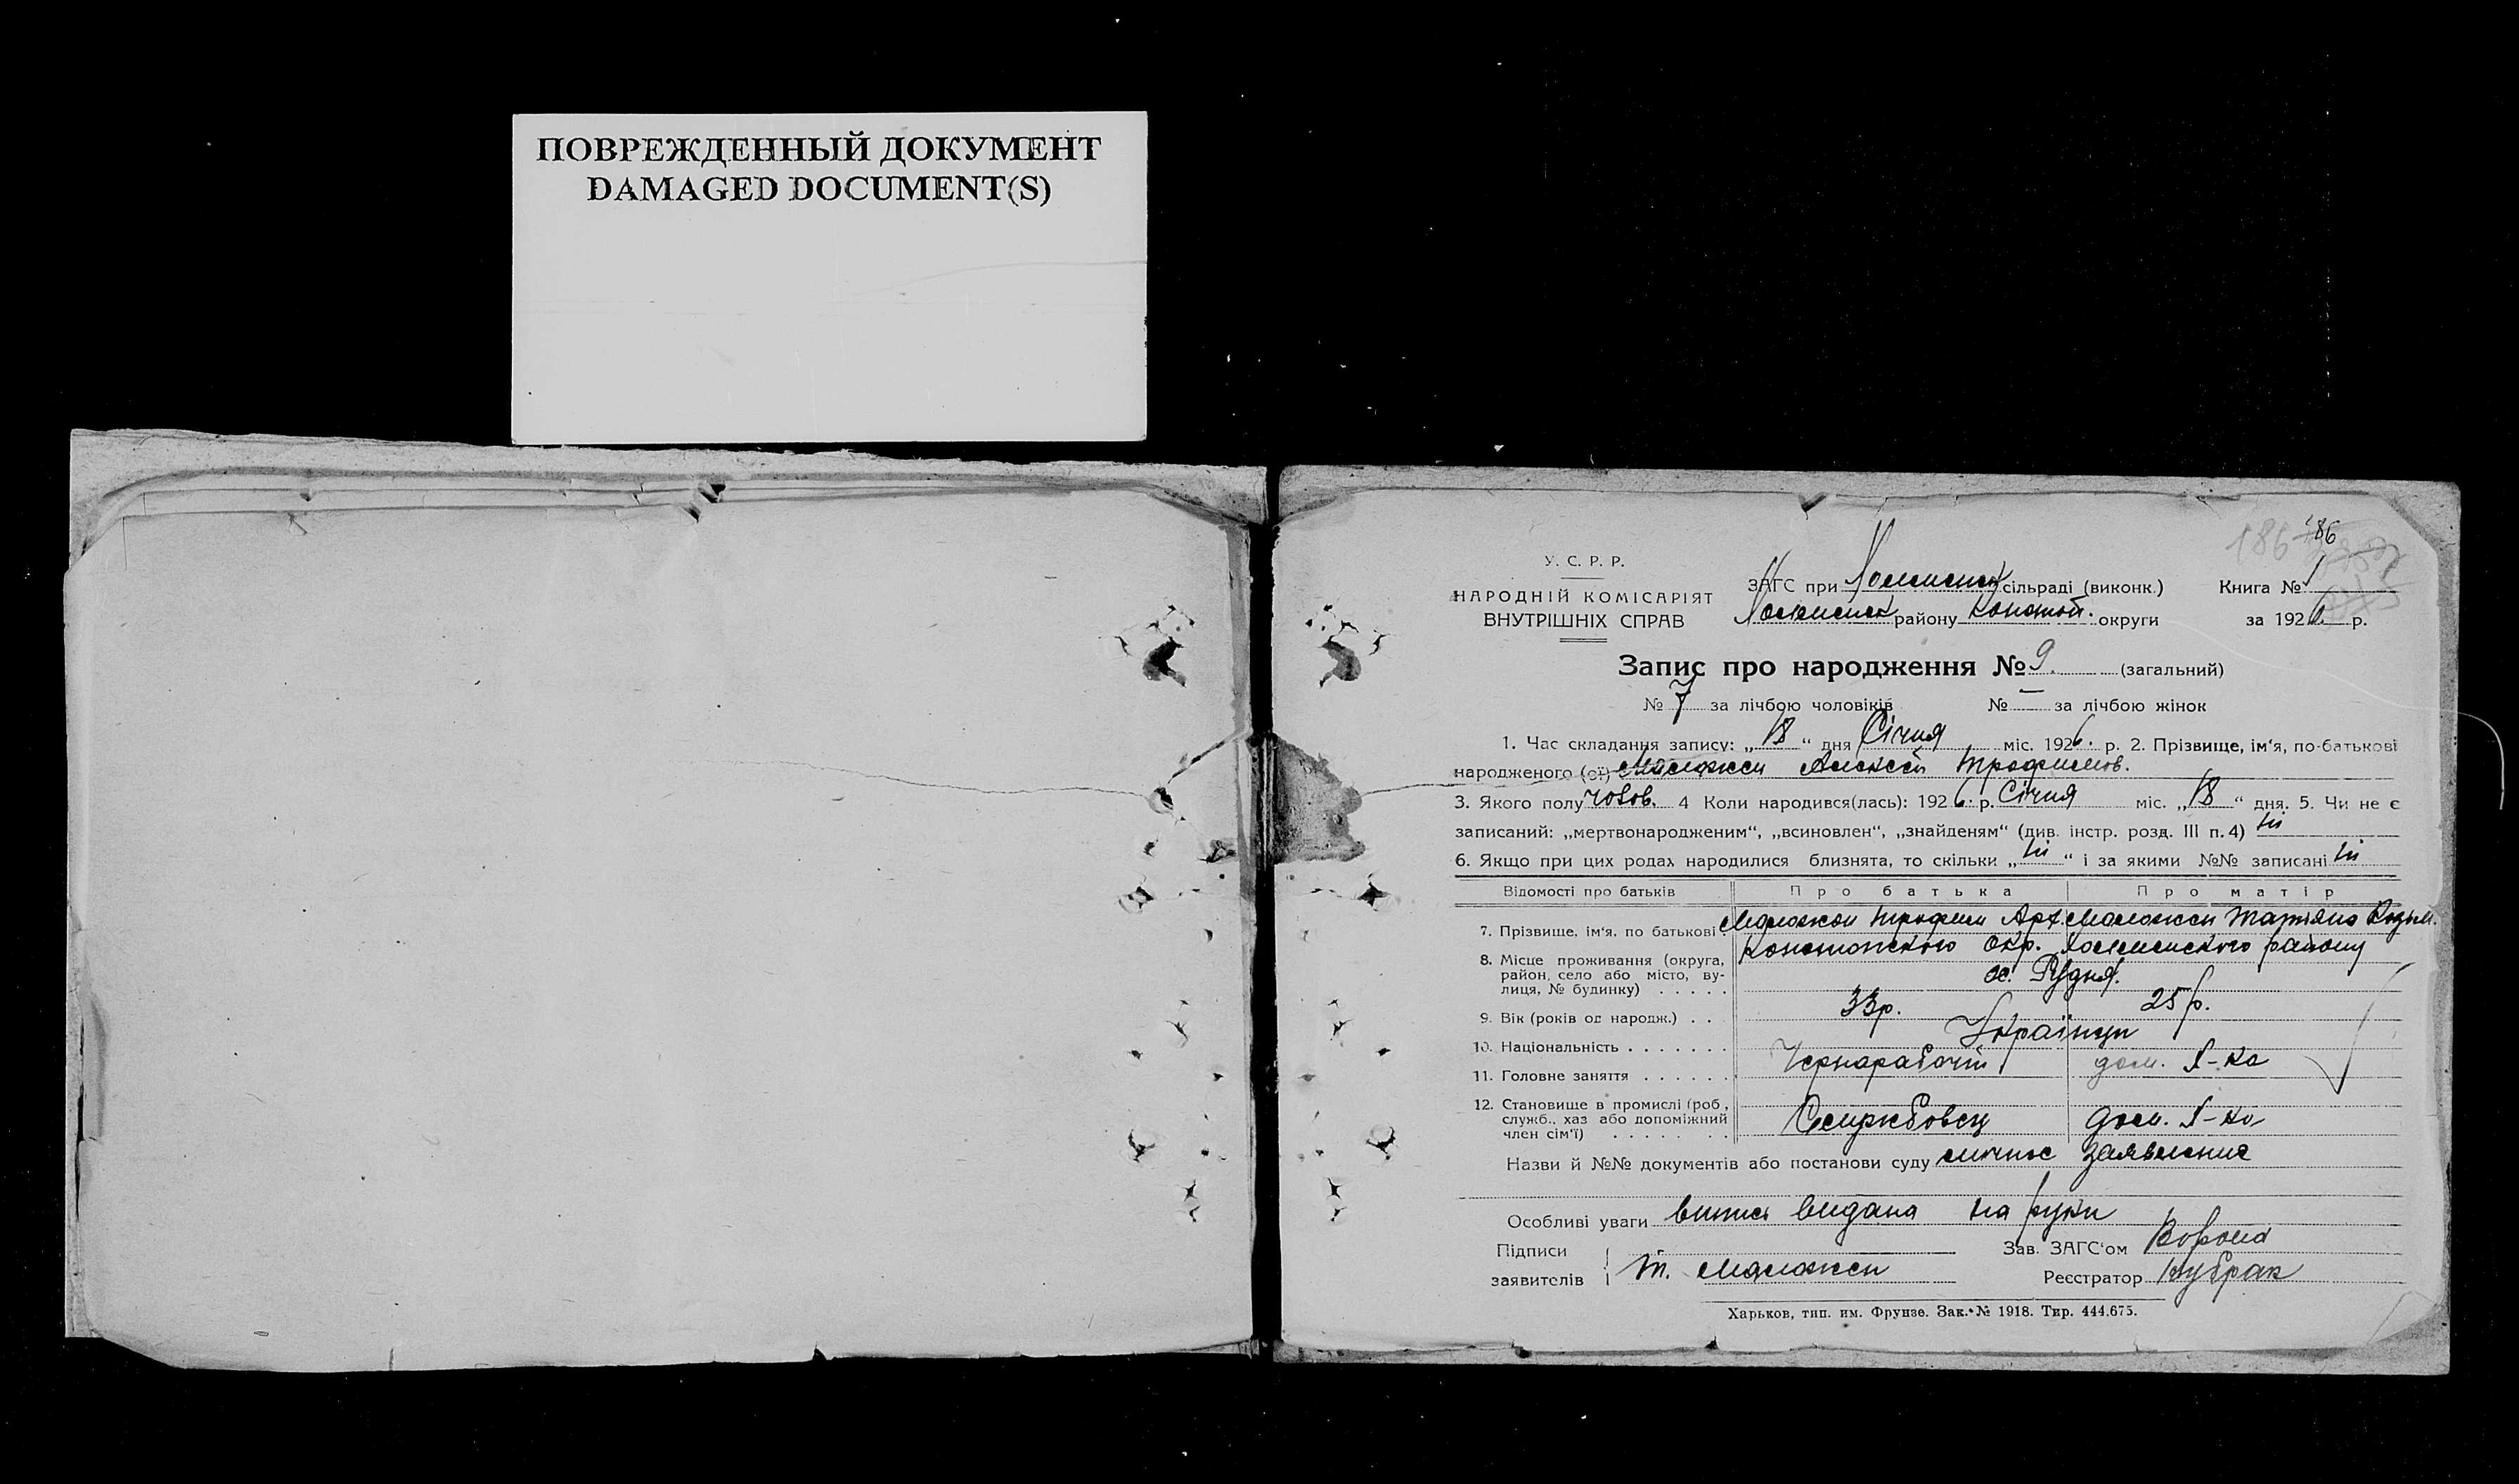 ПОВРЕЖДЕННЫЙ ДОКУМЕНТ
DAMAGED DOCUMENT(S)
186 186
У. С. Р. Р.
НАРОДНІЙ КОМІСАРІЯТ
ВНУТРІШНІХ СПРАВ
ЗАГС при сільраді (виконк.) Книга № 1
району Конотоп. округи за 1926 р.
Запис про народження № 9. (загальний)
№ 7 за лічбою чоловіків № — за лічбою жінок
1. Час складання запису: „18“ дня Січня міс. 1926. р. 2. Прізвище, ім'я, по-батькові
народженого (ої) Маложон Алексей Трофимов.
3. Якого полу чолов. 4 Коли народився(лась): 1926. р. Січня міс. „18“ дня. 5. Чи не є
записаний: „мертвонародженим“, „всиновлен“, „знайденям“ (див. інстр. розд. III п. 4) ні
6. Якщо при цих родах народилися близнята, то скільки „ні“ і за якими №№ записані ні
Відомості про батьків Про батька Про матір
7. Прізвище, ім'я, по батькові Маложон Трофим Арх. Маложон Татьяна Козьм.
8. Місце проживання (округа, район, село або місто, вулиця, № будинку) . . . . . Конотопського Окр. району
х. Рудня.
9. Вік (років од народж.) . . 33р. 25 р.
10. Національність . . . . . . . Українци
11. Головне заняття . . . . . . Чернарабочий дом. х-ка
12. Становище в промислі (роб., служб., хаз або допоміжний член сім'ї) . . . . . . . Службовец дом. х-ка
Назви й №№ документів або постанови суду личное заявление
Особливі уваги випись видана на руки
Підписи Зав. ЗАГС'ом Ворона
заявителів Т. Маложон Реєстратор
Харьков, тип. им. Фрунзе. Зак. № 1918. Тир. 444.675.